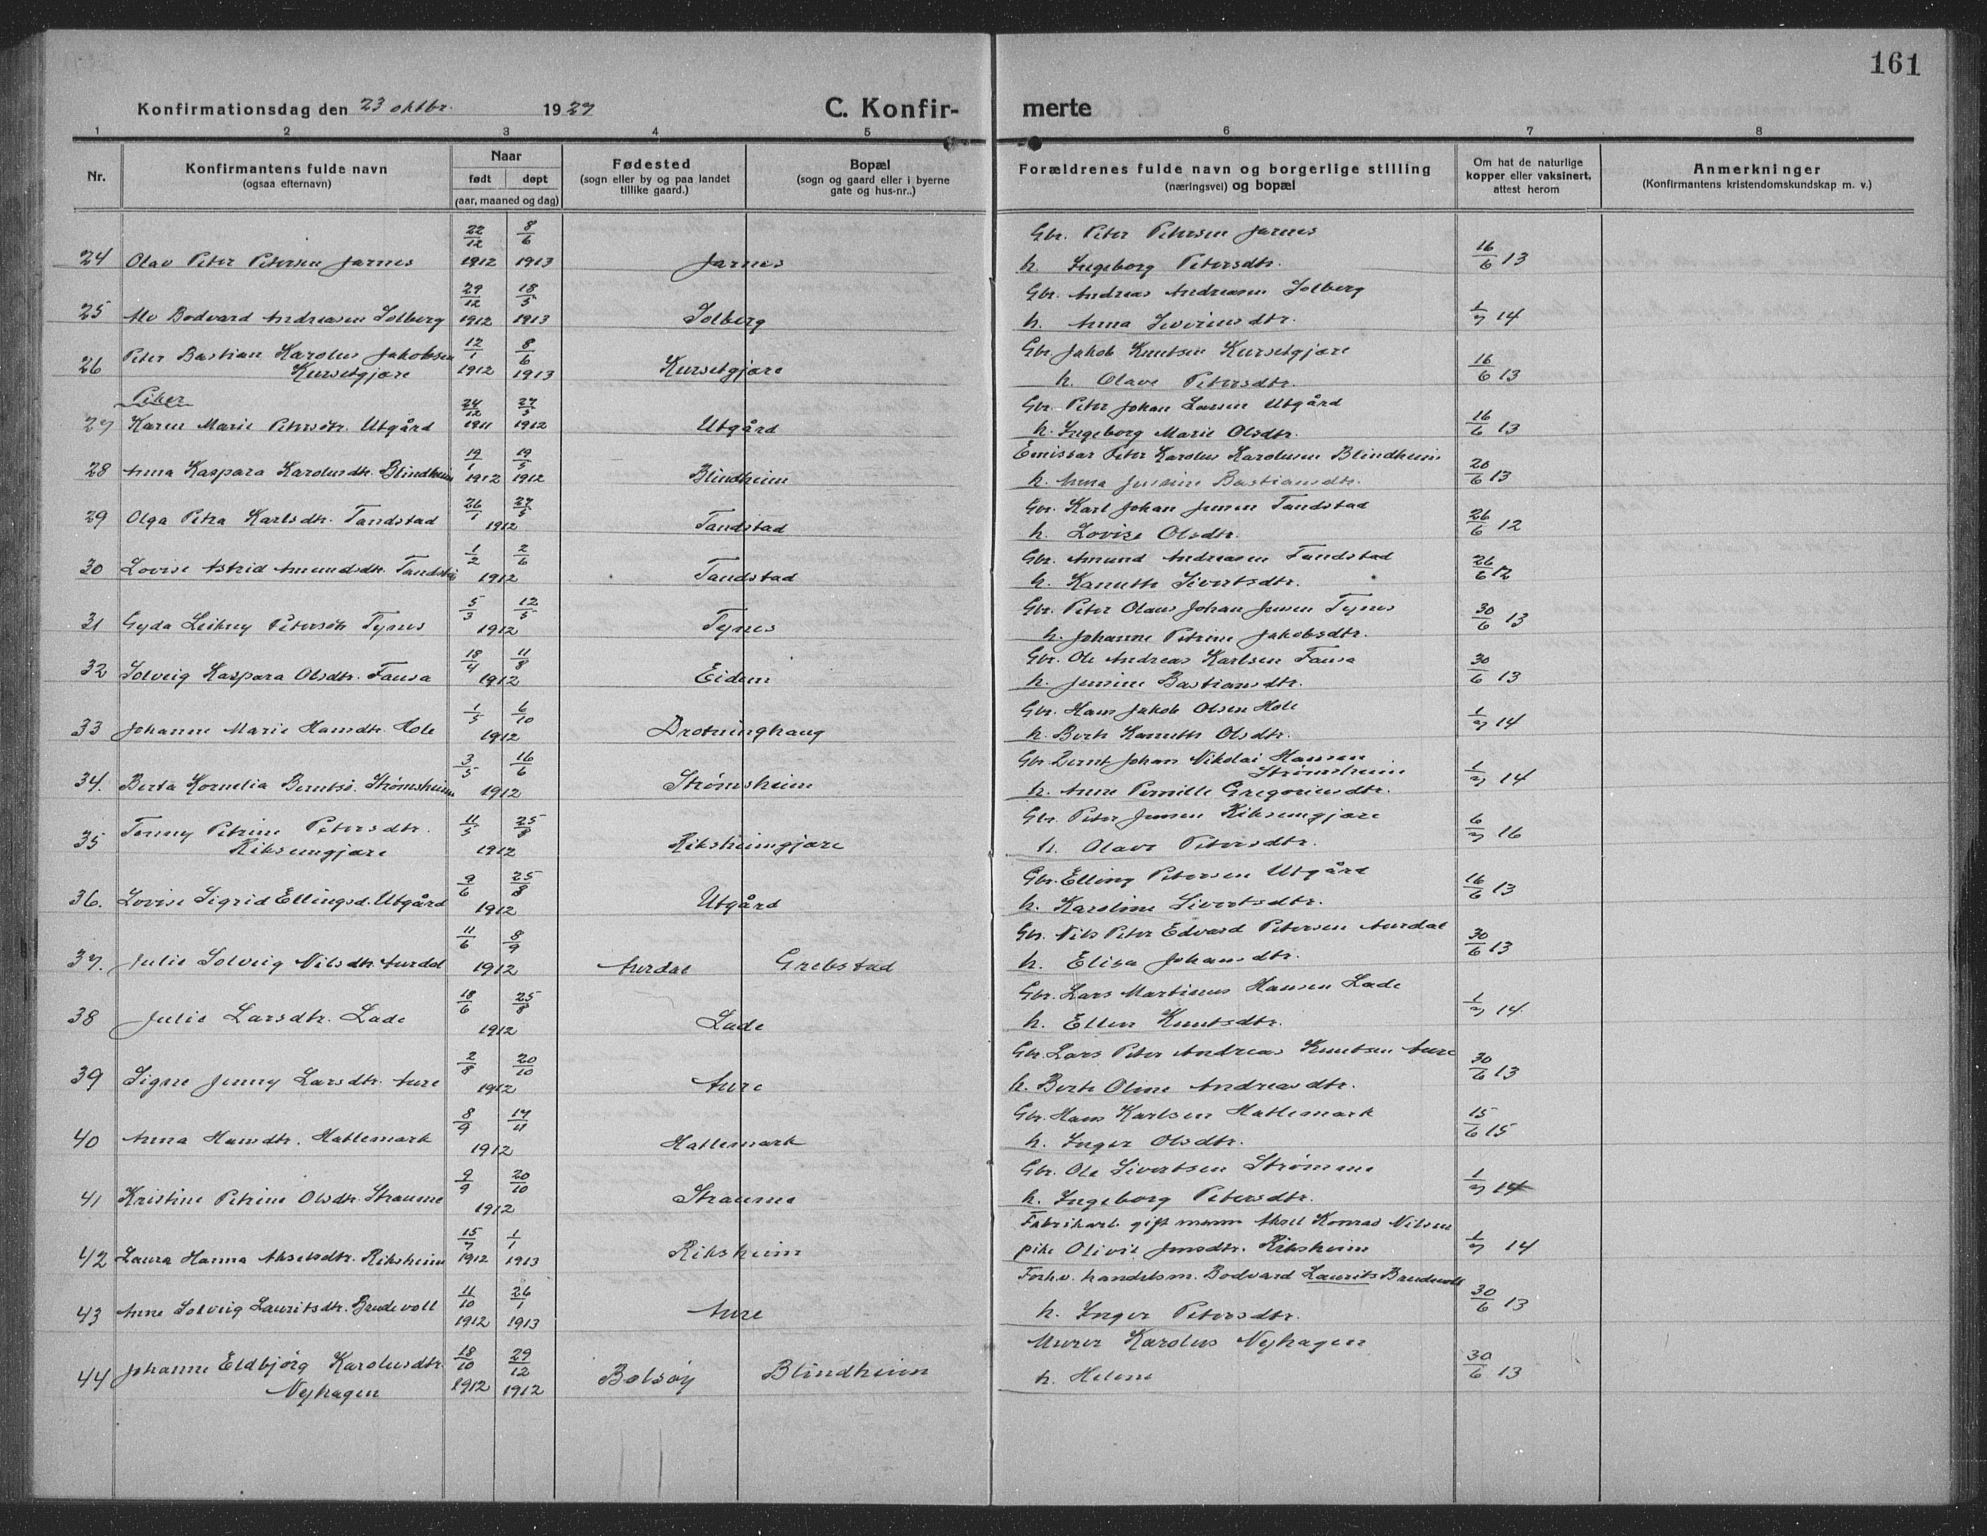 161
Konfirmationsdag den 23 oktbr. 1927 C. Konfirmerte
1 2 3 4 5 6 7 8
Nr.
Konfirmantens fulde navn
(ogsaa efternavn)
Naar
født døpt
(aar, maaned og dag)
Fødested
(sogn eller by og paa landet
tillike gaard.)
Bopæl
(sogn og gaard eller i byerne
gate og hus-nr..)
Forældrenes fulde navn og borgerlige stilling
(næringsvei) og bopæl
Om hat de naturlige
kopper eller vaksinert,
attest herom
Anmerkninger
(Konfirmantens kristendomskundskap m. v.)
22/12 8/6 Gbr. Peter Petersen Jarnes
24 Olav Peter Petersen Jarnes 1912 1913 Jarnes h. Ingeborg Petersdtr. 16/6 13
29/12 18/5 Gbr. Andreas Andreasen Solberg
25 Alv Bodvard Andreasen Solberg 1912 1913 Solberg h. Anna Severinsdtr. 1/7 14
Peter Bastian Karolus Jakobsen 12/1 8/6 Gbr. Jakob Knutsen Kursetgjære
26 Kursetgjære 1912 1913 Kursetgjære h. Olave Petersdtr. 16/6 13
Piker
24/12 27/5 Gbr. Peter Johan Larsen Utgård
27 Karen Marie Petersdtr. Utgård 1911 1912 Utgård h. Ingeborg Marie Olsdtr. 16/6 13
19/1 19/5 Emissær Peter Karolus Karolusen Blindheim
28 Anna Kaspara Karolusdtr. Blindheim 1912 1912 Blindheim h. Anna Jensine Bastiansdtr. 20/6 13
26/1 27/5 Gbr. Karl Johan Jensen Tandstad
29 Olga Petra Karlsdtr. Tandstad 1912 Tandstad h. Lovise Olsdtr. 26/6 12
1/2 2/6 Gbr. Amund Andreasen Tandstad
30 Lovise Astrid Amundsdtr. Tandsta 1912 Tandstad h. Kanutte Sivertsdtr. 26/6 12
5/3 12/5 Gbr. Peter Olaus Johan Jensen Tynes
31 Gyda Leikny Petersdtr Tynes 1912 Tynes h. Johanne Petrine Jakobsdtr. 30/6 13
18/4 11/8 Gbr. Ole Andreas Karlsen Fausa
32 Solveig Kaspara Olsdtr. Fausa 1912 Eidem h. Jensine Bastiansdtr. 30/6 13
1/5 6/10 Gbr. Hans Jakob Olsen Hole
33 Johanne Marie Hansdtr Hole 1912 Drotninghaug h. Berte Kanutte Olsdtr. 1/7 14
3/5 16/6 Gbr. Bernt Johan Nikolai Hansen
Strømsheim
34. Berta Kornelia Berntsd. Strømsheim 1912 Strømsheim h. Anne Pernille Gregoriusdtr. 1/7 14
Jenny Petrine Petersdtr. 11/5 25/8 Gbr. Peter Jensen Riksemgjære
35 Riksemgjære 1912 Riksheimgjære h. Olave Petersdtr. 6/7 16
9/6 25/8 Gbr. Elling Petersen Utgård
36. Lovise Sigrid Ellingsd. Utgård 1912 Utgård h. Karoline Sivertsdtr. 16/6 13
11/6 8/9 Gbr. Nils Peter Edvard Petersen Aurdal
37. Julie Solveig Nilsdtr. Aurdal 1912 Aurdal Grebstad h. Elisa Johansdtr. 30/6 13
18/6 25/8 Gbr. Lars Martinus Hansen Lade
38 Julie Larsdtr. Lade 1912 Lade h. Ellen Knutsdtr. 1/7 14
2/8 20/10 Gbr. Lars Peter Andreas Knutsen Aure
39 Signe Jenny Larsdtr. Aure 1912 Aure h. Berte Oline Andreasdtr. 30/6 13
8/9 17/11 Gbr. Hans Karlsen Hatlemark
40 Anna Hansdtr. Hatlemark 1912 Hatlemark h. Inger Olsdtr. 15/6 15
9/9 20/10 Gbr. Ole Sivertsen Strømme
41 Kristine Petrine Olsdtr. Straume 1912 Straume h. Ingeborg Petersdtr. 1/7 14
15/7 1/1 Fabrikarb. gift mann Aksel Konrad Nilsen
42 Laura Hanna Akselsdtr. Riksheim 1912 1913 Riksheim pike Olivie Jensdtr. Riksheim 1/7 14
11/10 26/1 Forh.v. handelsm. Bodvard Laurits Brudevoll
43 Anne Solveig Lauritsdtr. Brudevoll 1912 1913 Aure h. Inger Petersdtr. 30/6 13
Johanne Eldbjörg Karolusdtr. 18/10 29/12 Murer Karolus Nyhagen
44 Nyhagen 1912 1912 Bolsöy Blindheim h. Helene 30/6 13